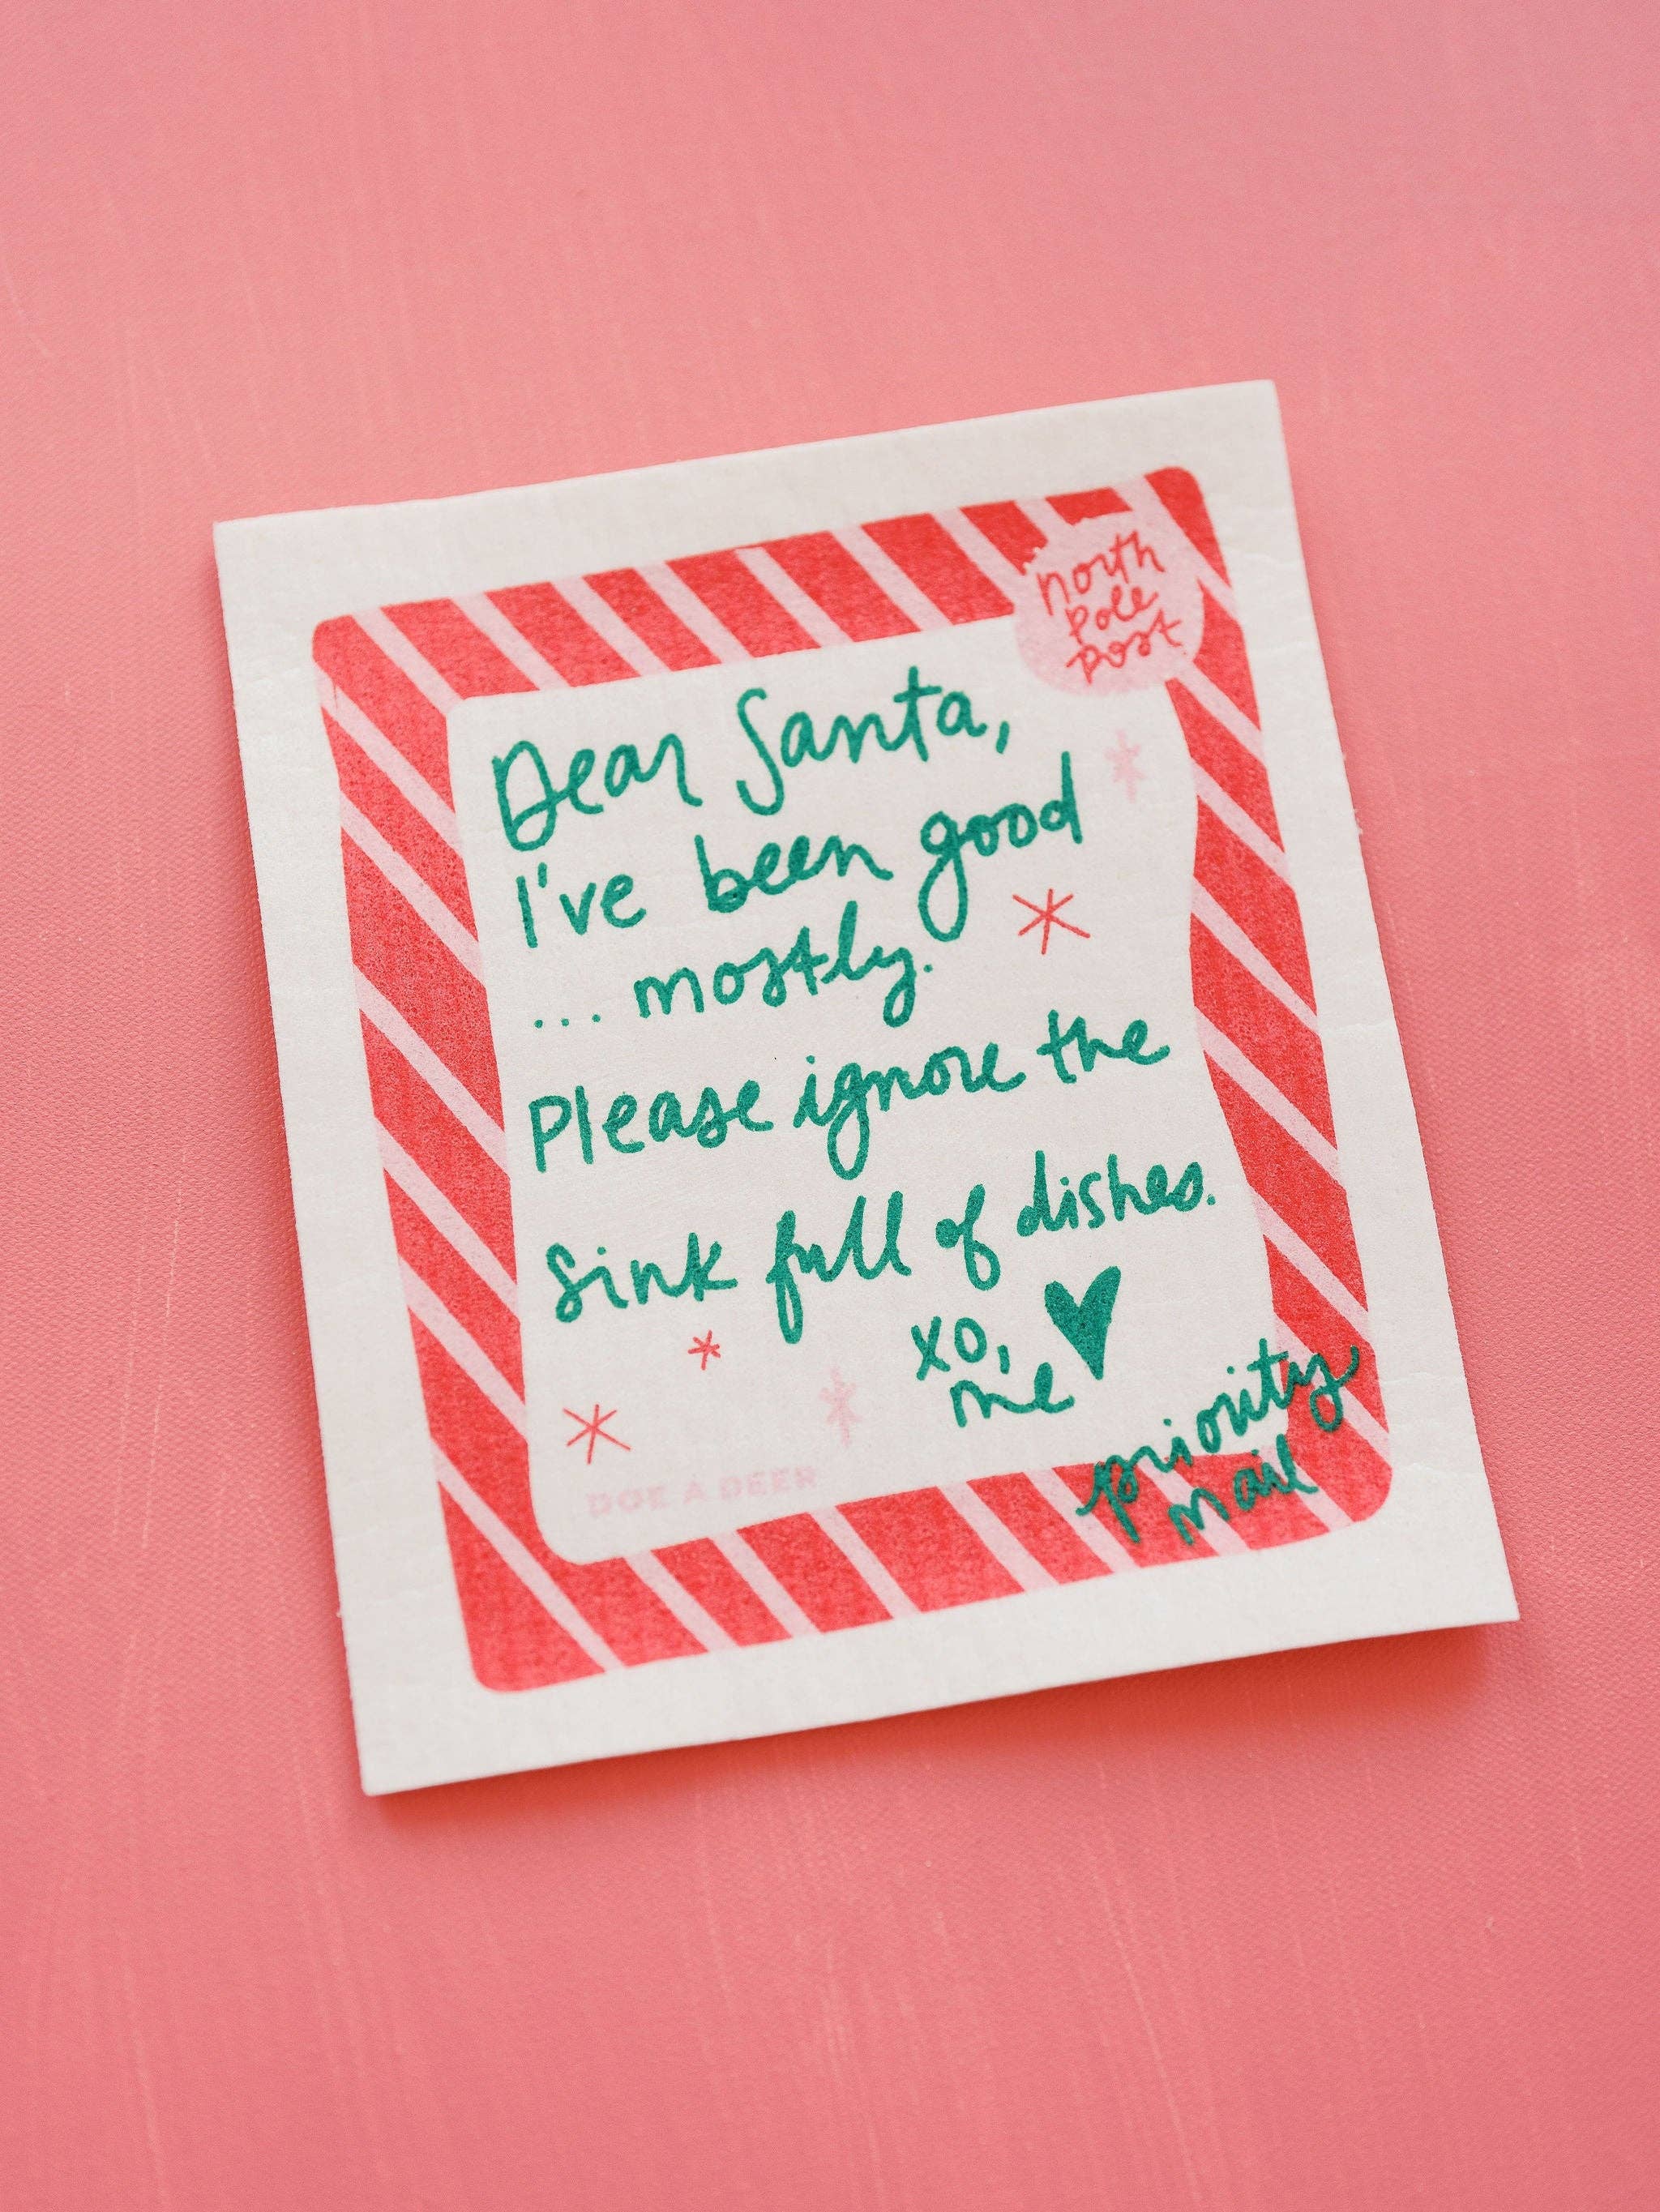 north
pole
post
Dear Santa,
I've been good
... mostly.
Please ignore the
sink full of dishes.
xo,
me
priority
mail
DOE A DEER